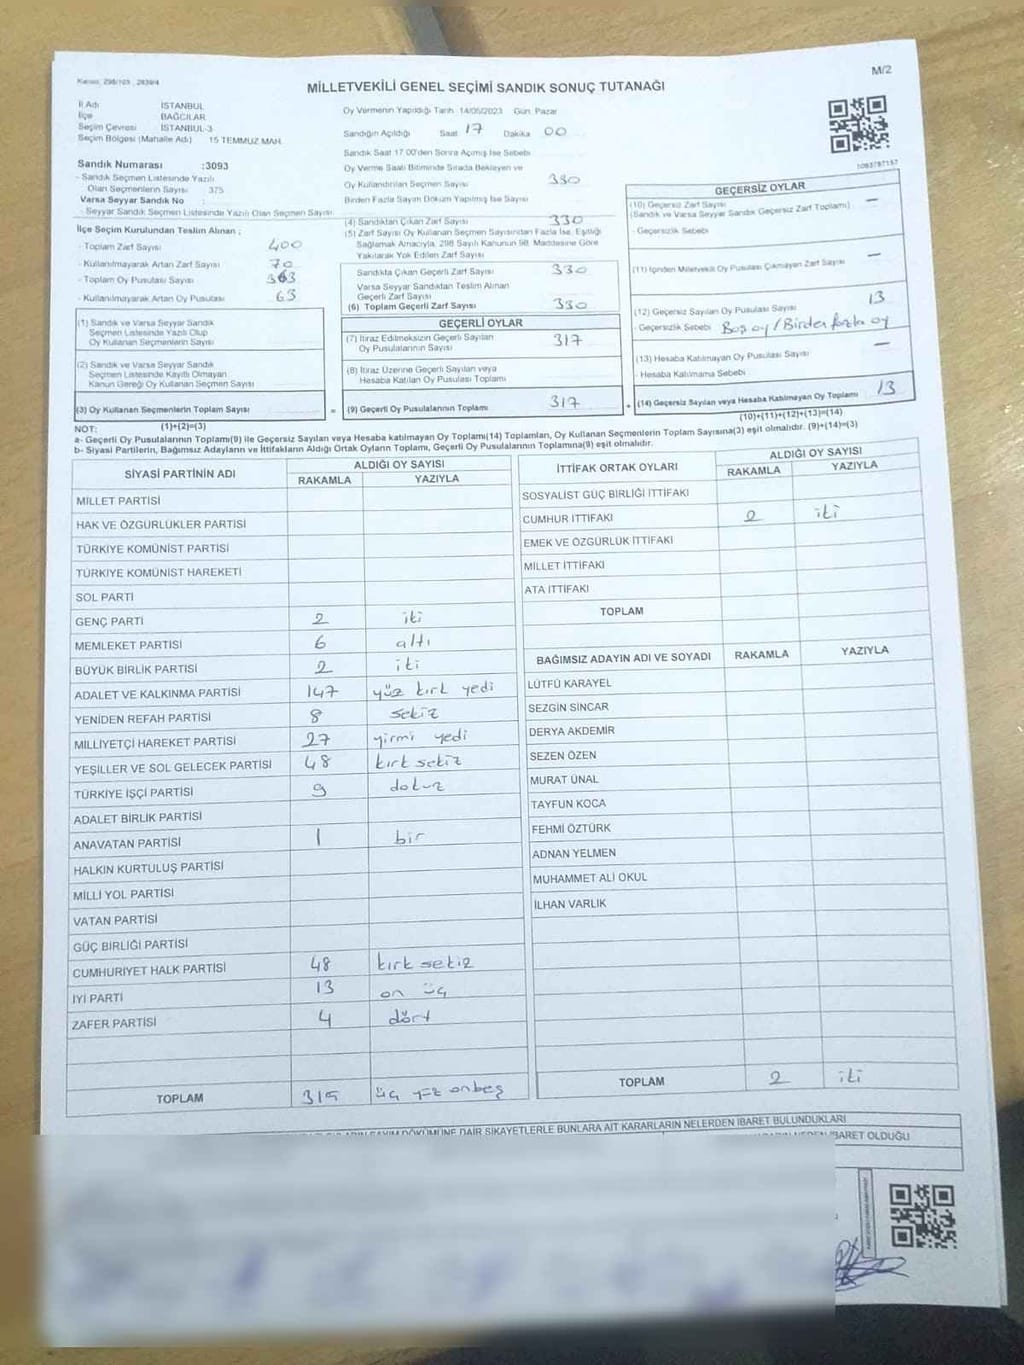 Kanun: 298/105 , 2839/4
M/2
MİLLETVEKİLİ GENEL SEÇİMİ SANDIK SONUÇ TUTANAĞI
İl Adı İSTANBUL
İlçe BAĞCILAR
Seçim Çevresi İSTANBUL-3
Seçim Bölgesi (Mahalle Adı) 15 TEMMUZ MAH.
Sandık Numarası :3093
- Sandık Seçmen Listesinde Yazılı
Olan Seçmenlerin Sayısı 375
Varsa Seyyar Sandık No :
- Seyyar Sandık Seçmen Listesinde Yazılı Olan Seçmen Sayısı
İlçe Seçim Kurulundan Teslim Alınan ;
- Toplam Zarf Sayısı 400
- Kullanılmayarak Artan Zarf Sayısı 70
- Toplam Oy Pusulası Sayısı
- Kullanılmayarak Artan Oy Pusulası 63
(1) Sandık ve Varsa Seyyar Sandık
Seçmen Listesinde Yazılı Olup
Oy Kullanan Seçmenlerin Sayısı
(2) Sandık ve Varsa Seyyar Sandık
Seçmen Listesinde Kayıtlı Olmayan
Kanun Gereği Oy Kullanan Seçmen Sayısı
(3) Oy Kullanan Seçmenlerin Toplam Sayısı
Oy Vermenin Yapıldığı Tarih 14/05/2023 Gün Pazar
Sandığın Açıldığı Saat 17 Dakika 00
Sandık Saat 17.00'den Sonra Açılmış İse Sebebi
Oy Verme Saati Bitiminde Sırada Bekleyen ve
Oy Kullandırılan Seçmen Sayısı 330
Birden Fazla Sayım Döküm Yapılmış İse Sayısı
(4) Sandıktan Çıkan Zarf Sayısı 330
(5) Zarf Sayısı Oy Kullanan Seçmen Sayısından Fazla İse, Eşitliği
Sağlamak Amacıyla, 298 Sayılı Kanunun 98. Maddesine Göre
Yakılarak Yok Edilen Zarf Sayısı
Sandıkta Çıkan Geçerli Zarf Sayısı 330
Varsa Seyyar Sandıktan Teslim Alınan
Geçerli Zarf Sayısı
(6) Toplam Geçerli Zarf Sayısı 330
GEÇERLİ OYLAR
(7) İtiraz Edilmeksizin Geçerli Sayılan
Oy Pusulalarının Sayısı 317
(8) İtiraz Üzerine Geçerli Sayılan veya
Hesaba Katılan Oy Pusulası Toplamı
= (9) Geçerli Oy Pusulalarının Toplamı 317
1093787157
GEÇERSİZ OYLAR
(10) Geçersiz Zarf Sayısı —
(Sandık ve Varsa Seyyar Sandık Geçersiz Zarf Toplamı)
- Geçersizlik Sebebi
(11) İçinden Milletvekili Oy Pusulası Çıkmayan Zarf Sayısı —
(12) Geçersiz Sayılan Oy Pusulası Sayısı 13
- Geçersizlik Sebebi Boş oy / Birden fazla oy
(13) Hesaba Katılmayan Oy Pusulası Sayısı —
- Hesaba Katılmama Sebebi
+ (14) Geçersiz Sayılan veya Hesaba Katılmayan Oy Toplamı 13
NOT: (1)+(2)=(3) (10)+(11)+(12)+(13)=(14)
a- Geçerli Oy Pusulalarının Toplamı(9) ile Geçersiz Sayılan veya Hesaba katılmayan Oy Toplamı(14) Toplamları, Oy Kullanan Seçmenlerin Toplam Sayısına(3) eşit olmalıdır. (9)+(14)=(3)
b- Siyasi Partilerin, Bağımsız Adayların ve İttifakların Aldığı Ortak Oyların Toplamı, Geçerli Oy Pusulalarının Toplamına(9) eşit olmalıdır.
SİYASİ PARTİNİN ADI ALDIĞI OY SAYISI
RAKAMLA YAZIYLA
MİLLET PARTİSİ
HAK VE ÖZGÜRLÜKLER PARTİSİ
TÜRKİYE KOMÜNİST PARTİSİ
TÜRKİYE KOMÜNİST HAREKETİ
SOL PARTİ
GENÇ PARTİ 2 iki
MEMLEKET PARTİSİ 6 altı
BÜYÜK BİRLİK PARTİSİ 2 iki
ADALET VE KALKINMA PARTİSİ 147 yüz kırk yedi
YENİDEN REFAH PARTİSİ 8 sekiz
MİLLİYETÇİ HAREKET PARTİSİ 27 yirmi yedi
YEŞİLLER VE SOL GELECEK PARTİSİ 48 kırk sekiz
TÜRKİYE İŞÇİ PARTİSİ 9 dokuz
ADALET BİRLİK PARTİSİ
ANAVATAN PARTİSİ 1 bir
HALKIN KURTULUŞ PARTİSİ
MİLLİ YOL PARTİSİ
VATAN PARTİSİ
GÜÇ BİRLİĞİ PARTİSİ
CUMHURİYET HALK PARTİSİ 48 kırk sekiz
İYİ PARTİ 13 on üç
ZAFER PARTİSİ 4 dört
TOPLAM 315 üç yüz onbeş
İTTİFAK ORTAK OYLARI ALDIĞI OY SAYISI
RAKAMLA YAZIYLA
SOSYALİST GÜÇ BİRLİĞİ İTTİFAKI
CUMHUR İTTİFAKI 2 iki
EMEK VE ÖZGÜRLÜK İTTİFAKI
MİLLET İTTİFAKI
ATA İTTİFAKI
TOPLAM
BAĞIMSIZ ADAYIN ADI VE SOYADI RAKAMLA YAZIYLA
LÜTFÜ KARAYEL
SEZGİN SİNCAR
DERYA AKDEMİR
SEZEN ÖZEN
MURAT ÜNAL
TAYFUN KOCA
FEHMİ ÖZTÜRK
ADNAN YELMEN
MUHAMMET ALİ OKUL
İLHAN VARLIK
TOPLAM 2 iki
DÖKÜMÜNE DAİR ŞİKAYETLERLE BUNLARA AİT KARARLARIN NELERDEN İBARET BULUNDUKLARI
İBARET OLDUĞU